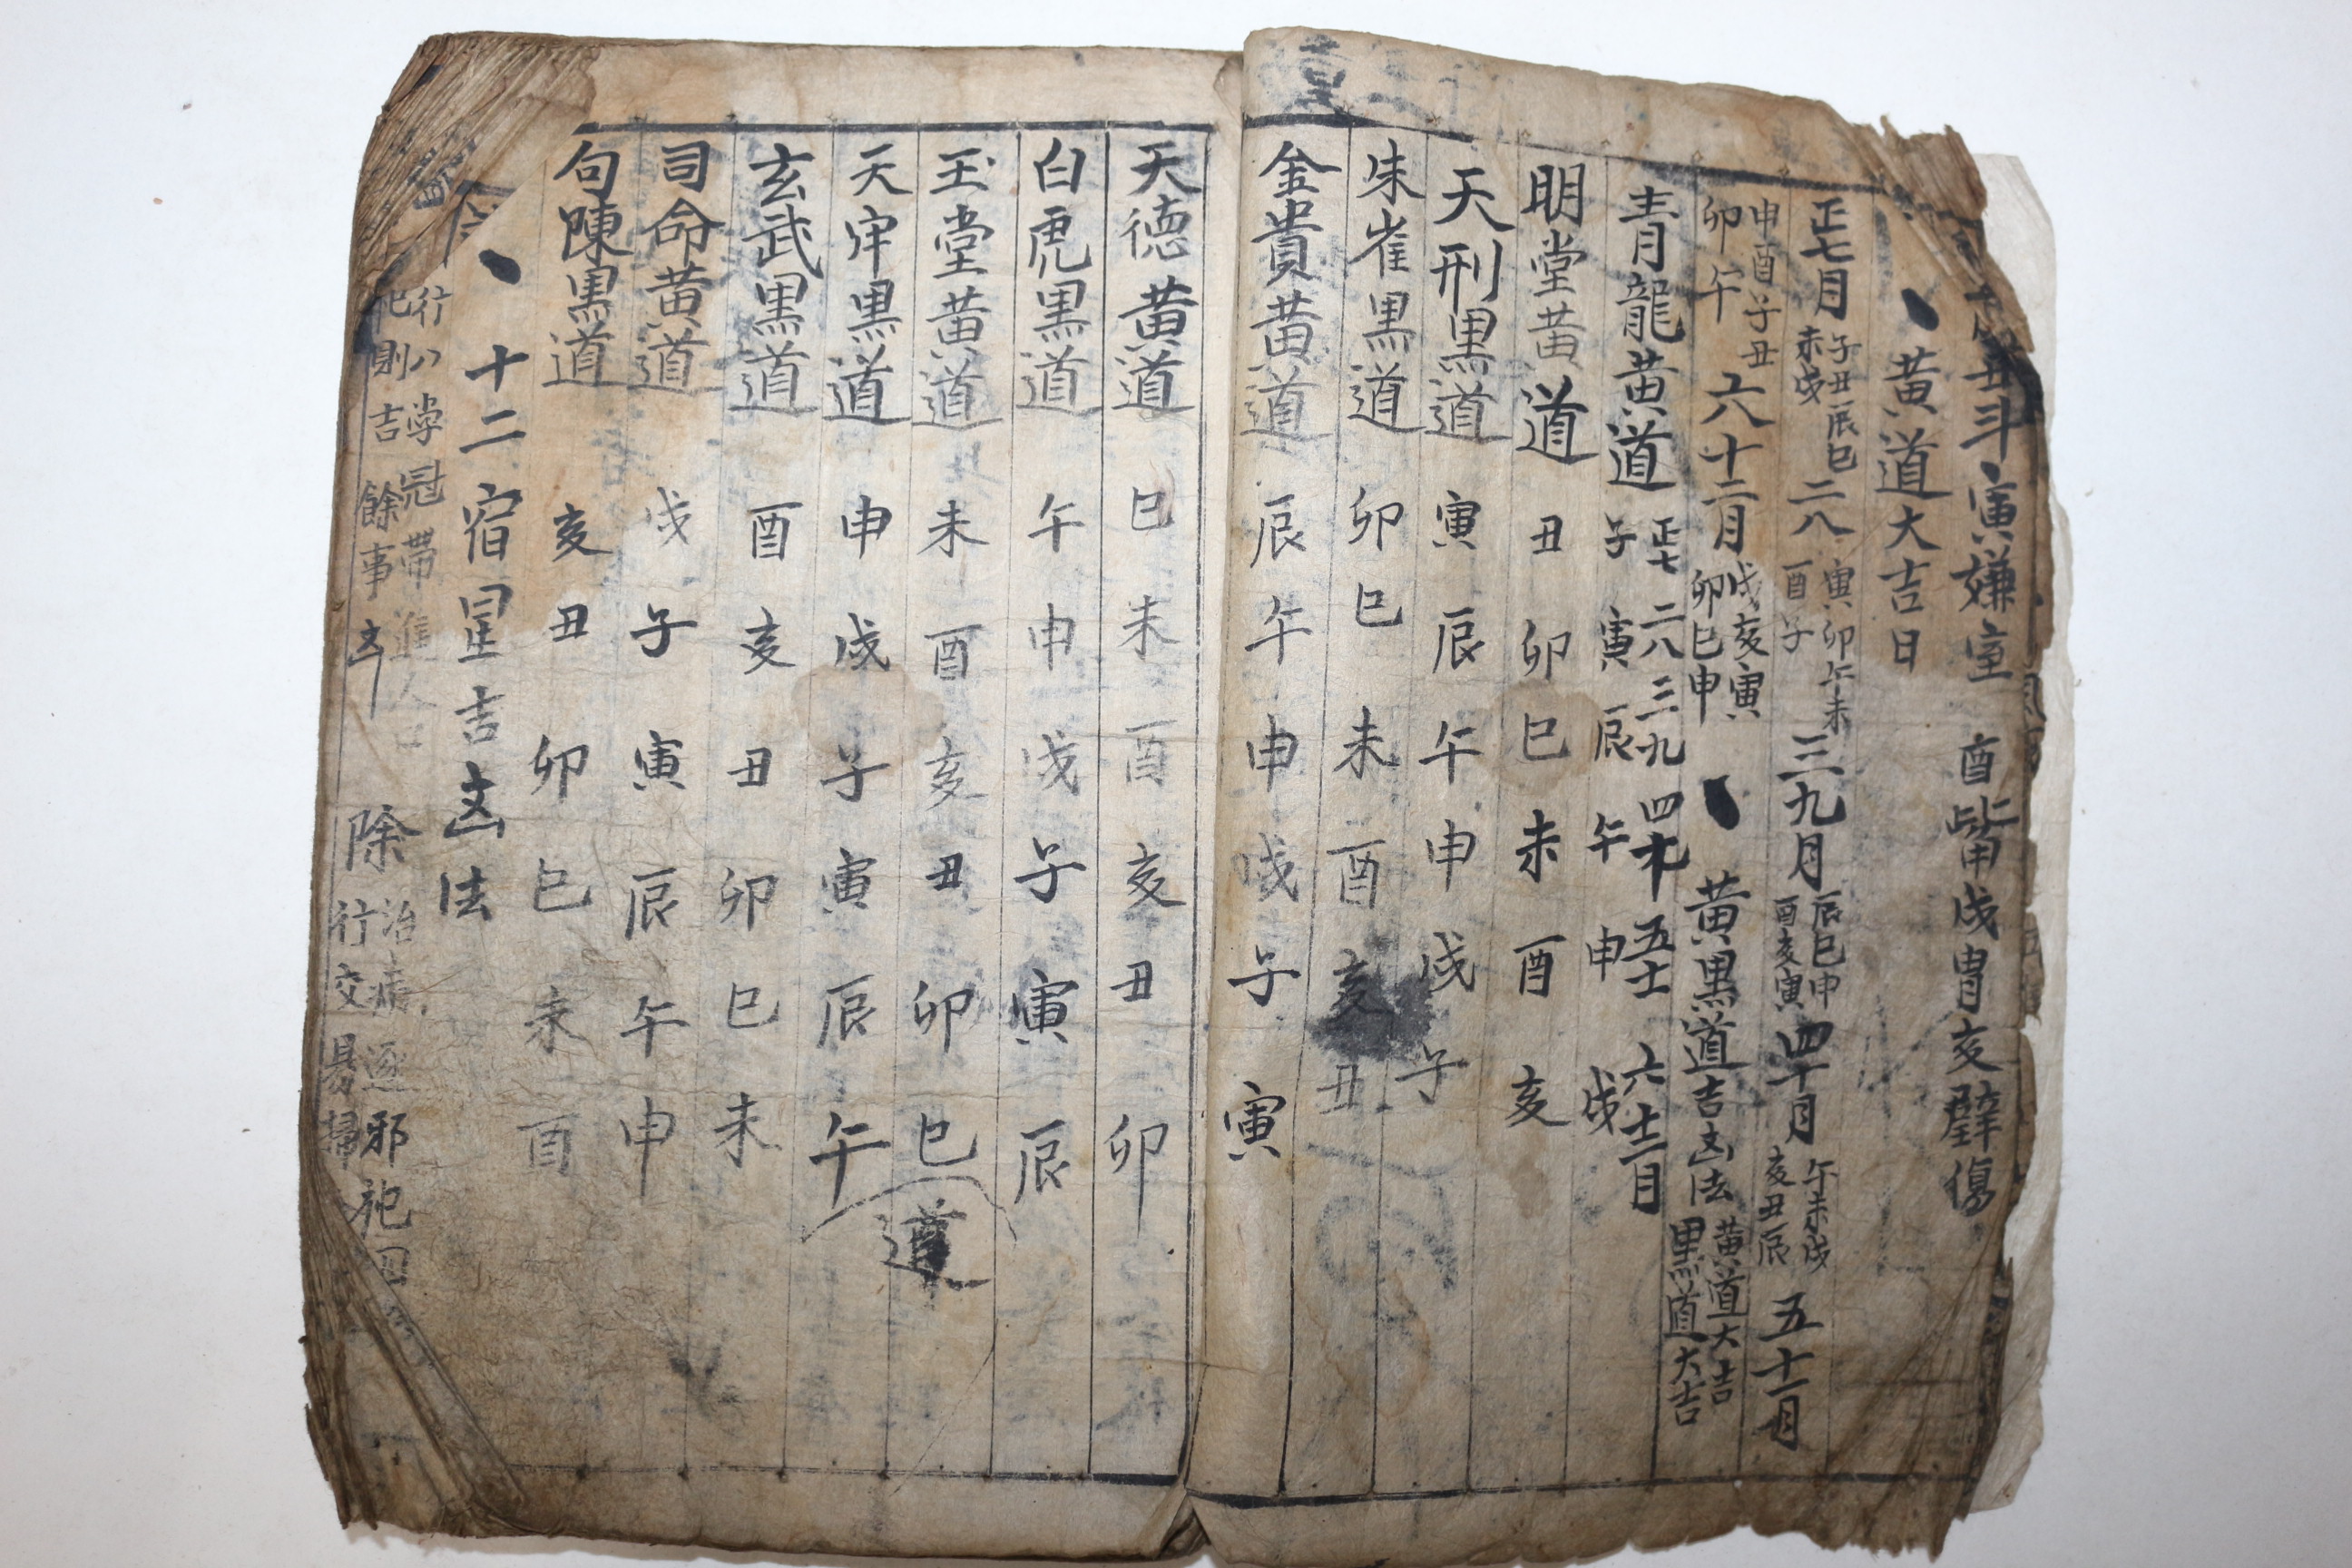 丑斗寅嫌室 酉觜戌胃亥壁傷
黃道大吉日
正七月 子丑辰巳未戌 二八 寅卯午未酉子 三九月 辰巳申酉亥寅 四十月 午未戌亥丑辰 五十一月
申酉子丑卯午 六十二月 戌亥寅卯巳申 黃黒道吉凶法 黃道大吉黒道大吉
正七 二八 三九 四十 五十一 六十二月
青龍黃道 子 寅 辰 午 申 戌
明堂黃道 丑 卯 巳 未 酉 亥
天刑黒道 寅 辰 午 申 戌 子
朱崔黒道 卯 巳 未 酉 亥 丑
金貴黃道 辰 午 申 戌 子 寅
天德黃道 巳 未 酉 亥 丑 卯
白虎黒道 午 申 戌 子 寅 辰
玉堂黃道 未 酉 亥 丑 卯 巳
道
天牢黒道 申 戌 子 寅 辰 午
玄武黒道 酉 亥 丑 卯 巳 未
司命黃道 戌 子 寅 辰 午 申
句陳黒道 亥 丑 卯 巳 未 酉
十二宿星吉凶法
行 學冠帶進人口
祀則吉餘事凶 除 治病逐邪祀
行交易掃